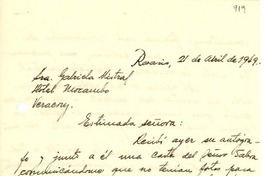 919
Rosario, 21 de Abril de 1949.
Sra. Gabriela Mistral
Hotel Mocambo
Veracruz.
Estimada señora:
Recibí ayer su autógra-
fo y junto a él una carta del Señor
comunicándome que no tenían fotos para